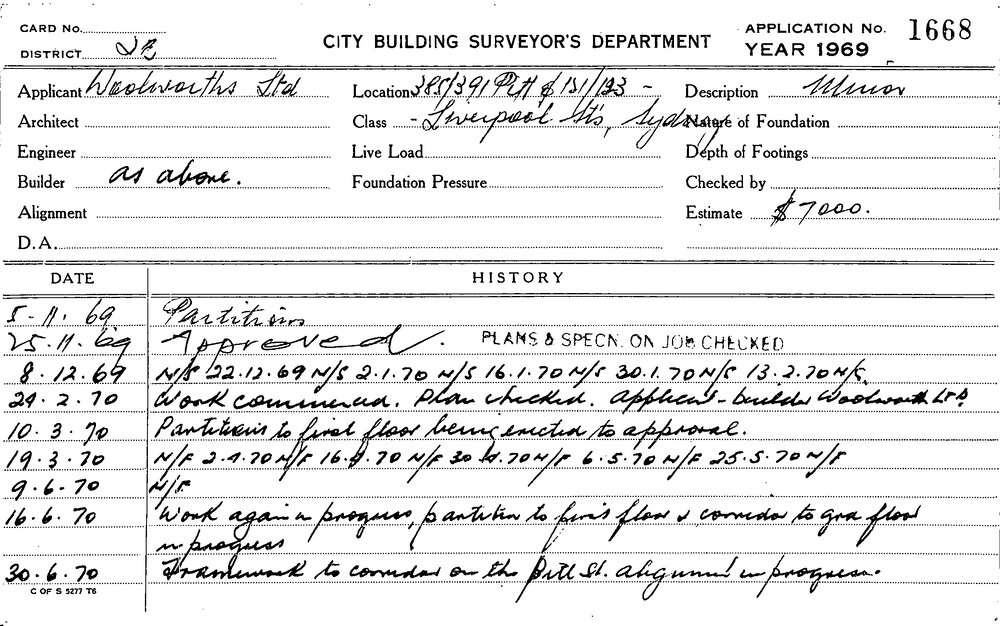 CARD No.
DISTRICT
CITY BUILDING SURVEYOR'S DEPARTMENT
APPLICATION No. 1668
YEAR 1969
Applicant Woolworths Ltd
Location 385/391 Pitt & 131/133 -
Description Minor
Architect
Class - Liverpool Sts, Sydney
Nature of Foundation
Engineer
Live Load
Depth of Footings
Builder as above.
Foundation Pressure
Checked by
Alignment
Estimate $7000.
D.A.
DATE HISTORY
5-11.69 Partitions
25.11.69 Approved. PLANS & SPECN. ON JOB CHECKED
8.12.69 N/S 22.12.69 N/S 2.1.70 N/S 16.1.70 N/S 30.1.70 N/S 13.2.70 N/S.
24.2.70 Work commenced. Plan checked. Applicant - builder Woolworth Ltd
10.3.70 Partitions to first floor being erected to approval.
19.3.70 N/F 2.4.70 N/F 16.4.70 N/F 30.4.70 N/F 6.5.70 N/F 25.5.70 N/F
9.6.70 N/F
16.6.70 Work again in progress, partition to first floor & corridor to grd floor
in progress
30.6.70 Framework to corridor on the Pitt St. alignment in progress.
C OF S 5277 T6